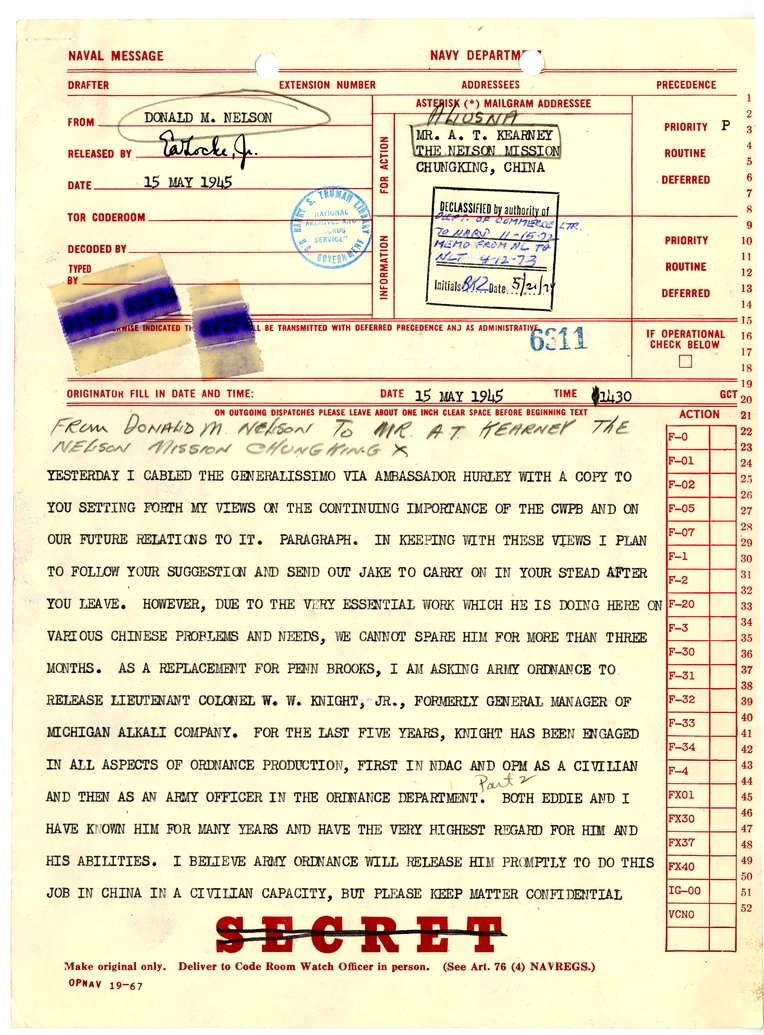 NAVAL MESSAGE NAVY DEPARTMENT
DRAFTER EXTENSION NUMBER ADDRESSEES PRECEDENCE
ASTERISK (*) MAILGRAM ADDRESSEE
ALUSNA
FROM DONALD M. NELSON
RELEASED BY EaLocke, Jr.
DATE 15 MAY 1945
TOR CODEROOM
DECODED BY
TYPED
BY
FOR ACTION
MR. A. T. KEARNEY
THE NELSON MISSION
CHUNGKING, CHINA
PRIORITY P
ROUTINE
DEFERRED
HARRY S. TRUMAN LIBRARY
"NATIONAL
ARCHIVES AND
RECORDS
SERVICE"
U.S. GOVERNMENT
INFORMATION
DECLASSIFIED by authority of
DEPT. OF COMMERCE LTR.
TO NARS 11-15-72
MEMO FROM NL TO
NLT 4-12-73
Initials Date 5/21/
PRIORITY
ROUTINE
DEFERRED
WISE INDICATED TH LL BE TRANSMITTED WITH DEFERRED PRECEDENCE AND AS ADMINISTRATIVE
6311
IF OPERATIONAL
CHECK BELOW
ORIGINATOR FILL IN DATE AND TIME: DATE 15 MAY 1945 TIME 1430 GCT
ON OUTGOING DISPATCHES PLEASE LEAVE ABOUT ONE INCH CLEAR SPACE BEFORE BEGINNING TEXT
FROM DONALD M. NELSON TO MR. A T KEARNEY THE
NELSON MISSION CHUNGKING X
YESTERDAY I CABLED THE GENERALISSIMO VIA AMBASSADOR HURLEY WITH A COPY TO
YOU SETTING FORTH MY VIEWS ON THE CONTINUING IMPORTANCE OF THE CWPB AND ON
OUR FUTURE RELATIONS TO IT. PARAGRAPH. IN KEEPING WITH THESE VIEWS I PLAN
TO FOLLOW YOUR SUGGESTION AND SEND OUT JAKE TO CARRY ON IN YOUR STEAD AFTER
YOU LEAVE. HOWEVER, DUE TO THE VERY ESSENTIAL WORK WHICH HE IS DOING HERE ON
VARIOUS CHINESE PROBLEMS AND NEEDS, WE CANNOT SPARE HIM FOR MORE THAN THREE
MONTHS. AS A REPLACEMENT FOR PENN BROOKS, I AM ASKING ARMY ORDNANCE TO
RELEASE LIEUTENANT COLONEL W. W. KNIGHT, JR., FORMERLY GENERAL MANAGER OF
MICHIGAN ALKALI COMPANY. FOR THE LAST FIVE YEARS, KNIGHT HAS BEEN ENGAGED
IN ALL ASPECTS OF ORDNANCE PRODUCTION, FIRST IN NDAC AND OPM AS A CIVILIAN
Part 2
AND THEN AS AN ARMY OFFICER IN THE ORDNANCE DEPARTMENT. BOTH EDDIE AND I
HAVE KNOWN HIM FOR MANY YEARS AND HAVE THE VERY HIGHEST REGARD FOR HIM AND
HIS ABILITIES. I BELIEVE ARMY ORDNANCE WILL RELEASE HIM PROMPTLY TO DO THIS
JOB IN CHINA IN A CIVILIAN CAPACITY, BUT PLEASE KEEP MATTER CONFIDENTIAL
ACTION
F-0
F-01
F-02
F-05
F-07
F-1
F-2
F-20
F-3
F-30
F-31
F-32
F-33
F-34
F-4
FX01
FX30
FX37
FX40
IG-00
VCNO
1
2
3
4
5
6
7
8
9
10
11
12
13
14
15
16
17
18
19
20
21
22
23
24
25
26
27
28
29
30
31
32
33
34
35
36
37
38
39
40
41
42
43
44
45
46
47
48
49
50
51
52
SECRET
Make original only. Deliver to Code Room Watch Officer in person. (See Art. 76 (4) NAVREGS.)
OPNAV 19-67